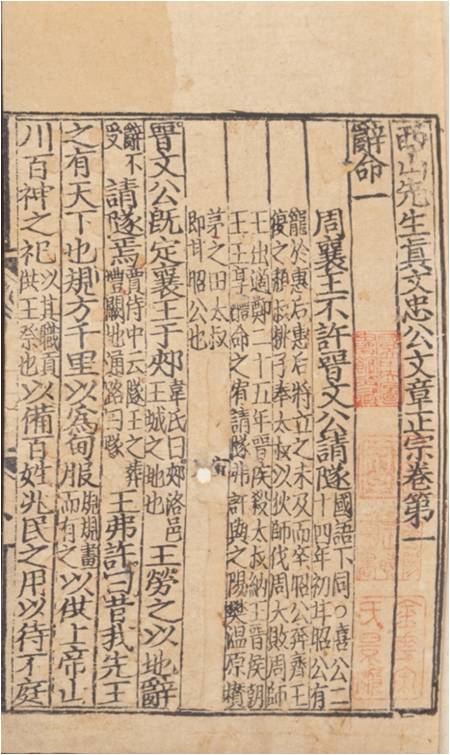 西山先生眞文忠公文章正宗卷第一
辭命一
周襄王不許晉文公請隧
國語下同○喜公二
十四年初甘昭公有
寵於惠后惠后將立之未及而卒昭公奔齊王
復之頽叔桃子奉太叔以狄師伐周大敗周師
王出適鄭二十五年晉侯殺太叔納王晉侯朝
王王享醴命之宥請隧弗許與之陽樊温原欑
茅之田太叔
即甘昭公也
晉文公既定襄王于郟
韋氏曰郟洛邑
王城之地也
王勞之以地辭
辭不
受
請隧焉
賈侍中云隧王之葬
禮闕地通路曰隧
王弗許曰昔我先王
之有天下也規方千里以爲甸服
規規畫
而有之
以供上帝山
川百神之祀
以其職貢
供王祭也
以備百姓兆民之用以待不庭